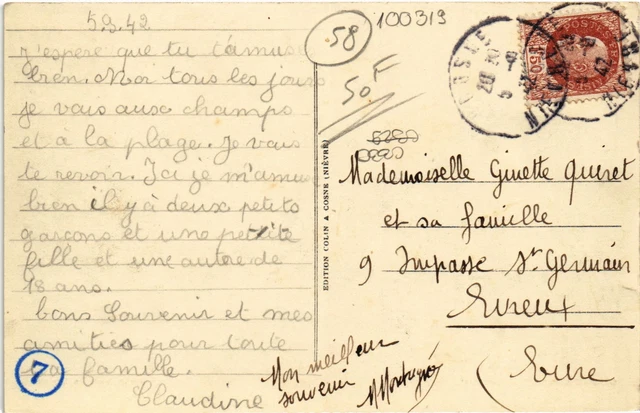 5.9.42
j'espère que tu t'amuse
bien. Moi tous les jours
je vais aux champs
et à la plage. Je vais
te revoir. Ici je m'amuse
bien il y à deux petits
garçons et une petite
fille et une autre de
18 ans.
bons Souvenir et mes
amitiés pour toute
ta famille.
Claudine
7
Mon meilleur
souvenir
EDITION COLIN A COSNE (NIÈVRE)
58
50F
100319
Mademoiselle Ginette Quiret
et sa famille
9 Impasse St Germain
Evreux
Eure